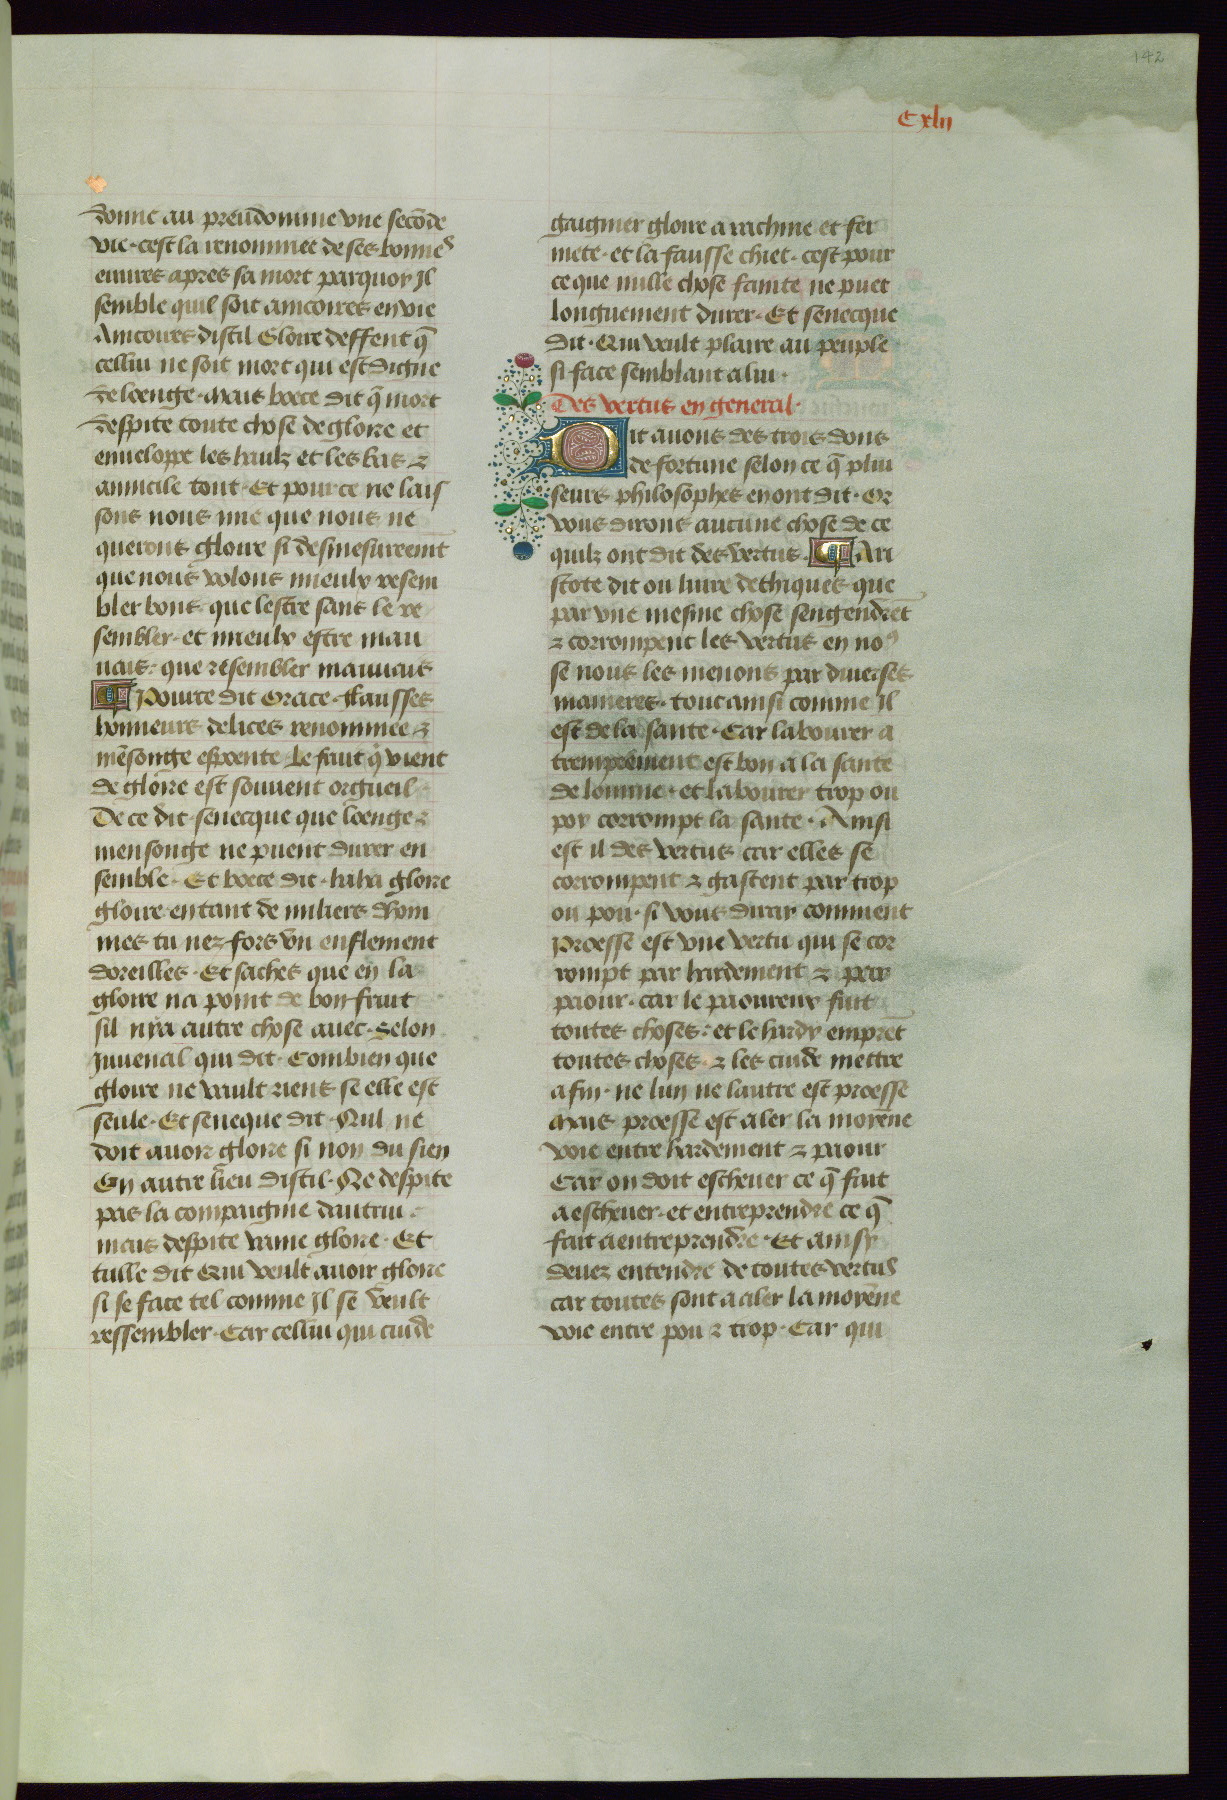 142
Cxlii
donne au preudomme vne secōde
vie · cest la renommee de ses bonnes
euures apres sa mort parquoy Il
semble quil soit ancoires en vie
Ancoires dist il Gloire deffent q̄
cellui ne soit mort qui est digne
de loenge · Mais boece dit q̄ mort
despite toute chose de gloire et
enueloppe les haulz et les bas ⁊
annicile tout · Et pour ce ne lais
sons nous mie que nous ne
querons gloire si desmesureemt
que nous volons mieulx resem
bler bons que lestre sans le re
sembler · et mieulx estre mau
uais · que resembler mauuais
¶ Pource dit Orace · Fausses
honneurs delices renommee ⁊
mēsonge espoente Le fruit q̄ vient
de gloire est souuent orgueil
De ce dit senecque que loenge ⁊
mensonge ne puent durer en
semble · Et boece dit · haha gloire
gloire entant de miliers dhom
mes tu nez fors vn enflement
doreilles · Et saches que en la
gloire na point de bon fruit
sil nya autre chose auec · Selon
Juuenal qui dit · Combien que
gloire ne vault riens se elle est
seule · Et seneque dit · Nul ne
doit auoir gloire si non du sien
En autre lieu dist il · Ne despite
pas la compaignie dautrui
mais despite vaine gloire · Et
tulle dit Qui veult auoir gloire
si se face tel comme Il se veult
ressembler · Car cellui qui cuide
gaignier gloire a rachine et fer
mete · et la fausse chiet · cest pour
ce que nulle chose fainte ne puet
longuement durer · Et senecque
dit · Qui veult plaire au peuple
si face semblant a lui ·
Des vertus en general ·
Dit auons des trois dons
de fortune selon ce q̄ plui
seurs philosophes en ont dit · Or
vous dirons aucune chose de ce
quilz ont dit des vertus · ¶ Ari
stote dit ou liure dethiques que
par vne mesme chose sengendrēt
⁊ corrompent les vertus en noꝰ
se nous les menons par diuerses
manieres · tout ainsi comme Il
est de la sante · Car labourer a
tremprement est bon a la sante
de lomme · et labourer trop ou
poy corrompt la sante · Ainsi
est il des vertus car elles se
corrompent ⁊ gastent par trop
ou pou · si vous diray comment
Proesse est vne vertu qui se cor
rompt par hardement ⁊ par
paour · car le paoureux fuit
toutes choses : et le hardy emprēt
toutes choses · ⁊ les cuide mettre
a fin · ne lun ne lautre est proesse
Mais proesse est aler la moyēne
voie entre hardement ⁊ paour
Car on doit escheuer ce q̄ fait
a escheuer · et entreprendre ce q̄
fait a entreprendre · Et ainsy
deuez entendre de toutes vertus
car toutes sont a aler la moyēne
voie entre pou ⁊ trop · Car qui